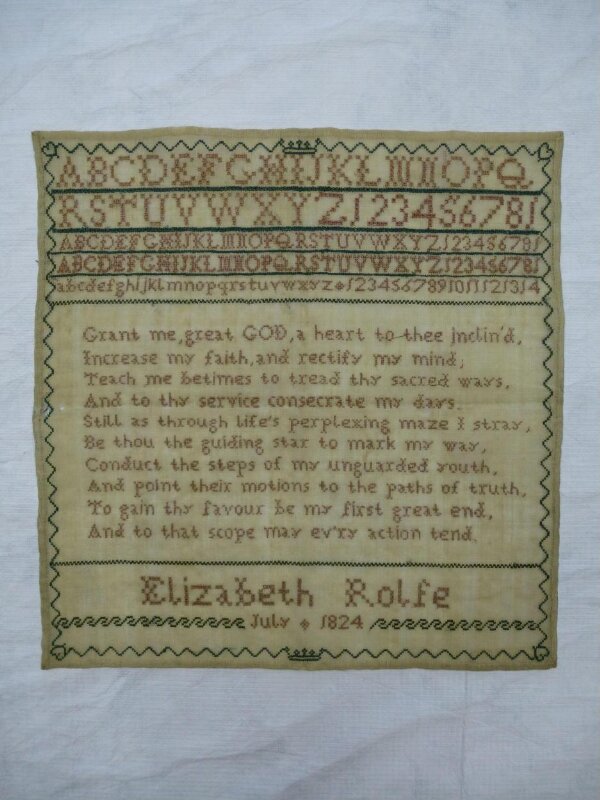 ABCDEFGHIJKLMNOPQ
RSTUVWXYZ12345678
ABCDEFGHIJKLMNOPQRSTUVWXYZ12345678
ABCDEFGHIJKLMNOPQRSTUVWXYZ12345678
abcdefghijklmnopqrstuvwxyz 1234567891011121314
Grant me, great GOD, a heart to thee inclin'd,
Increase my faith, and rectify my mind;
Teach me betimes to tread thy sacred ways,
And to thy service consecrate my days.
Still as through life's perplexing maze I stray,
Be thou the guiding star to mark my way,
Conduct the steps of my unguarded youth,
And point their motions to the paths of truth,
To gain thy favour be my first great end,
And to that scope may ev'ry action tend.
Elizabeth Rolfe
July 1824